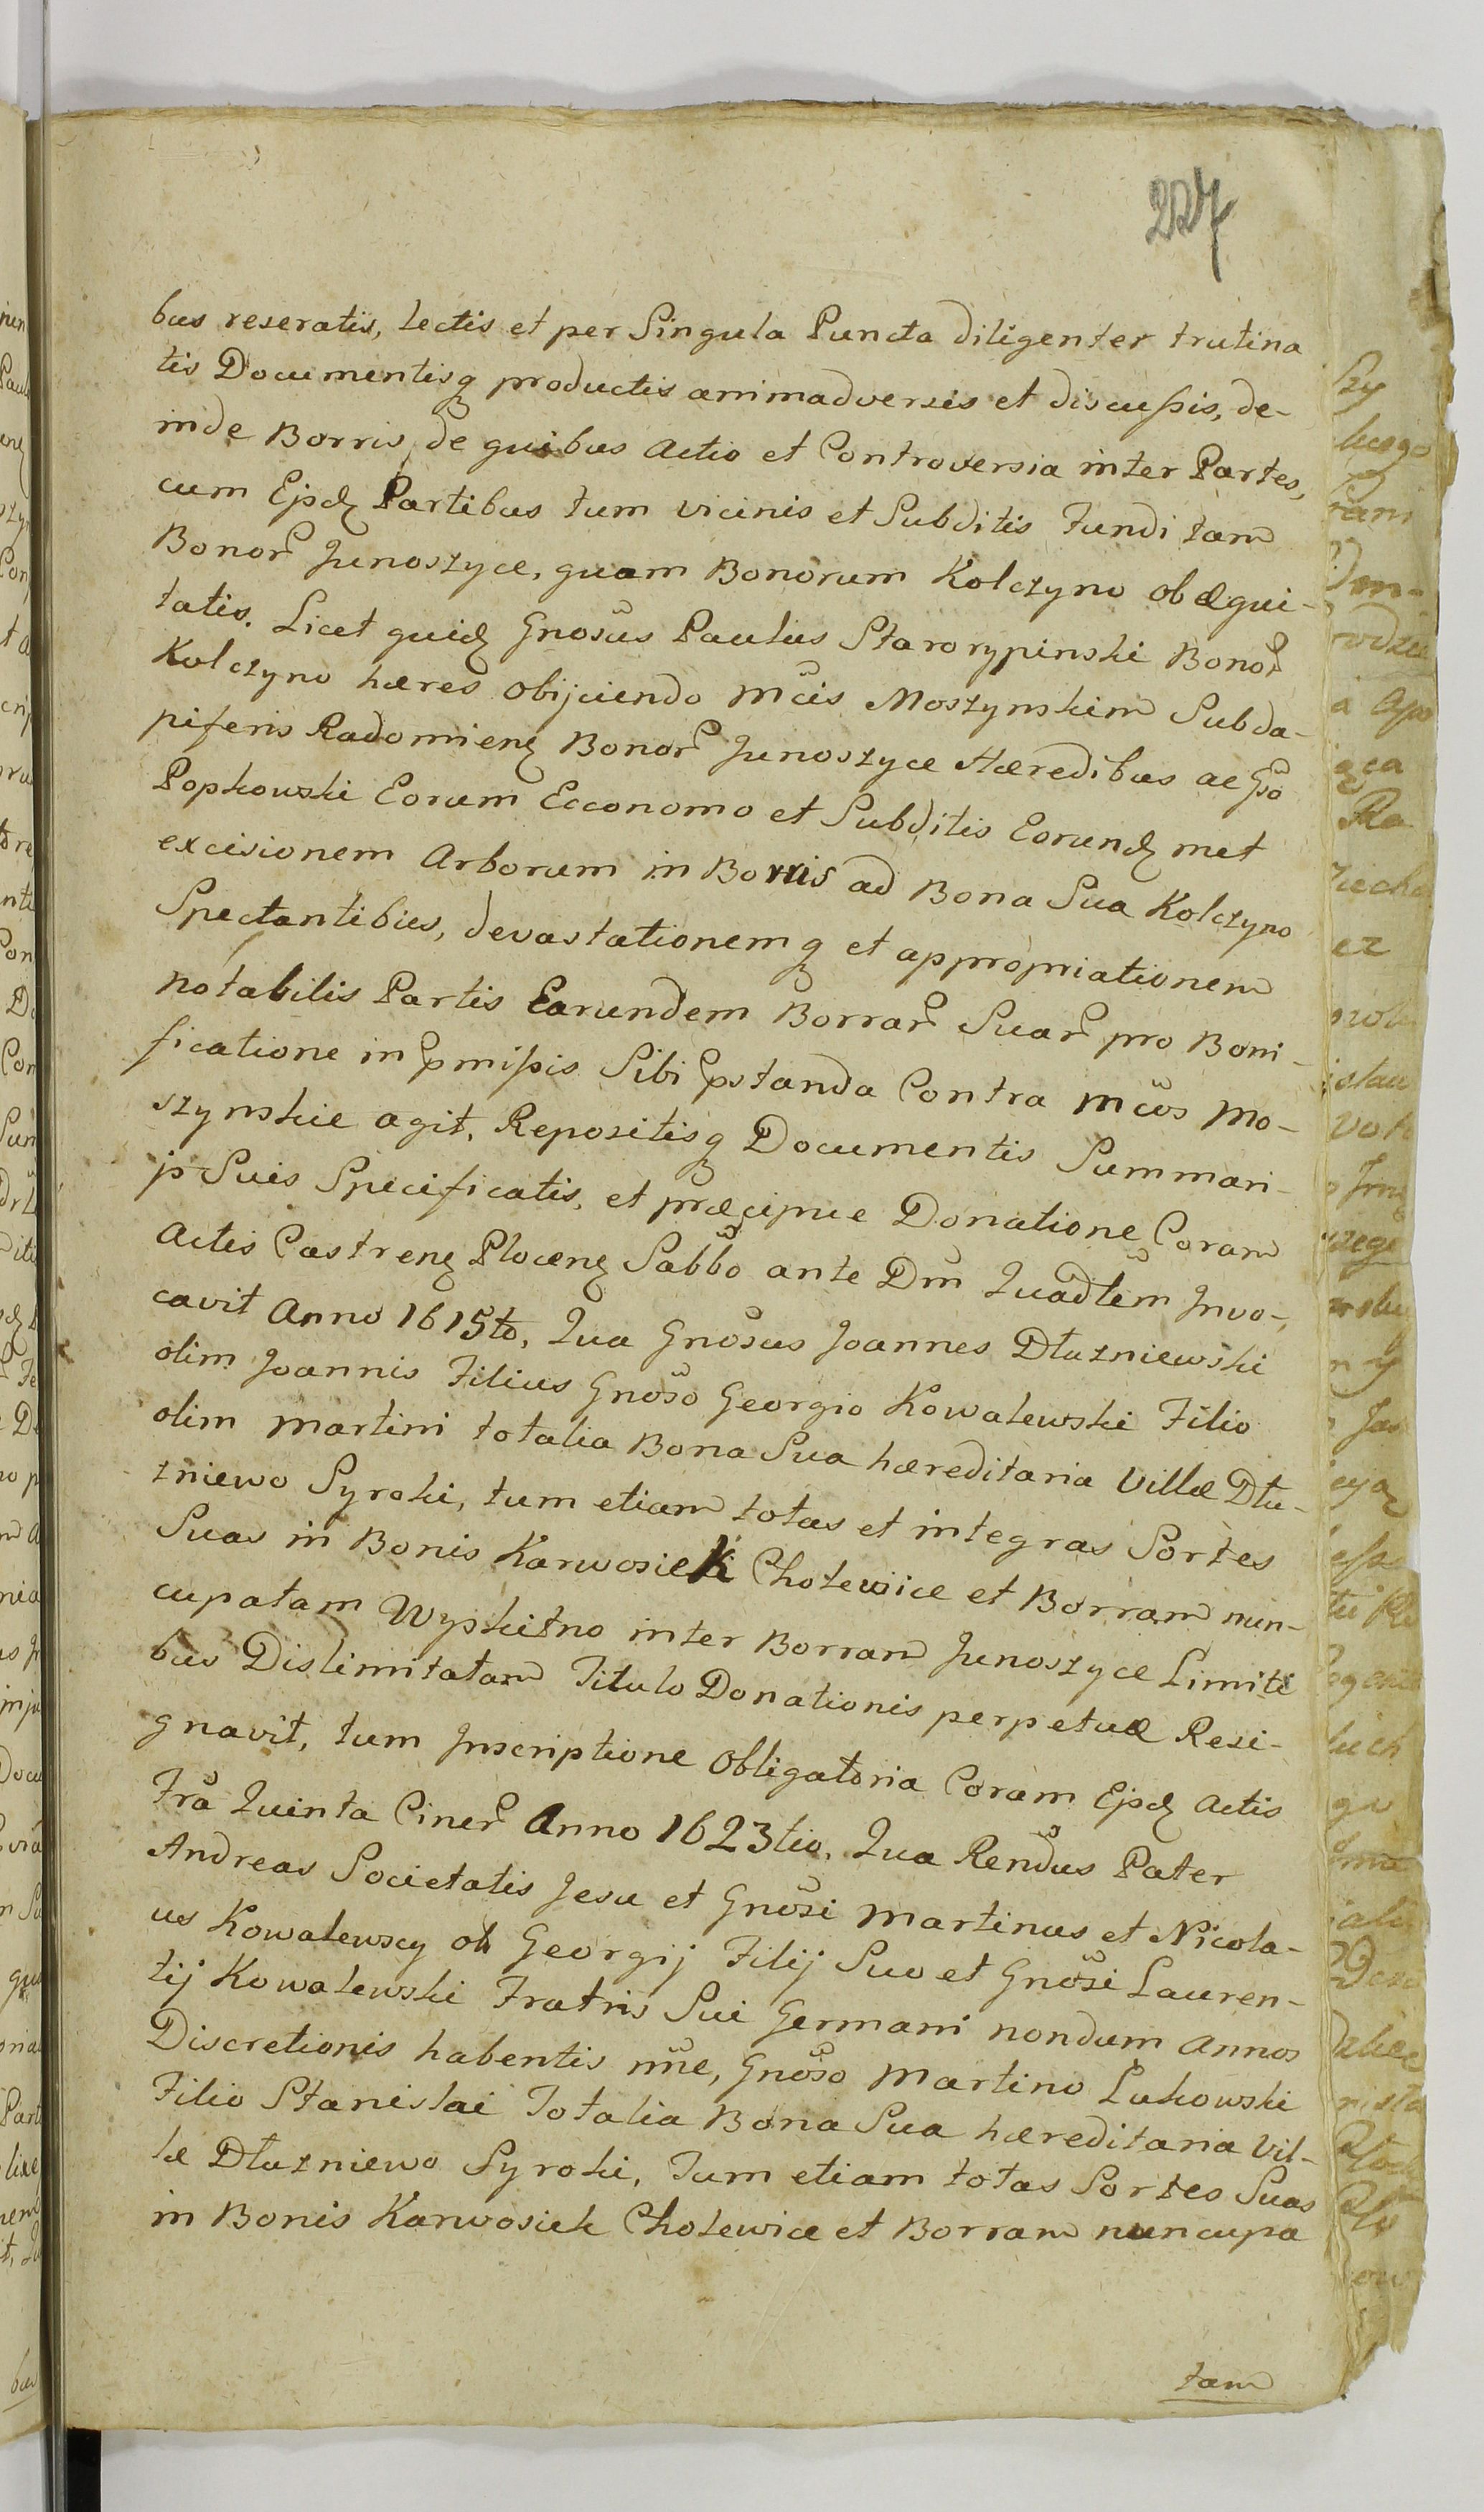 227
bus reseratis, lectis et per Singula Puncta diligenter trutina
tis Documentisq productis animadversis et discussis, de-
inde Borris, de quibus Actio et Controversia inter Partes,
cum Ejsdꝫ Partibus tum vicinis et Subditis Fundi tam
Bonor̃ Junoszyce, quam Bonorum Kolczyno obæqui-
tatis. Licet quidꝫ Gnosus Paulus Starorypinski Bonor̃
Kolczyno hæres objiciendo Mcis Moszynskim Subda-
piferis Radomienꝫ Bonor̃ Junoszyce Hæredibus ac Gso
Popkowski Eorum Economo et Subditis Eorundꝫ met
excisionem Arborum in Borris ad Bona Sua Kolczyno
Spectantibus, devastationemq et appropriationem
notabilis Partis Earundem Borrar̃ Suar̃ pro Boni-
ficatione in pmissis Sibi pstanda Contra Mcos Mo-
szynskie agit, Repositisq Documentis Summari-
js Suis Specificatis, et præcipue Donatione Coram
Actis Castrenꝫ Plocenꝫ Sabbo ante Dm Quadlem Invo-
cavit Anno 1615to, Qua Gnosus Joannes Dłuzniewski
olim Joannis Filius Gnoso Georgio Kowalewski Filio
olim Martini totalia Bona Sua hæreditaria Villæ Dłu-
zniewo Syroki, tum etiam totas et integras Sortes
Suas in Bonis Karwosieki Cholewice et Borram nun-
cupatam Wyskitno inter Borram Junoszyce Limiti
bus Dislimitatam Titulo Donationis perpetuæ Resi-
gnavit, tum Inscriptione Obligatoria Coram Ejsdꝫ Actis
Fra Quinta Ciner̃ Anno 1623tio, Qua Rendus Pater
Andreas Societatis Jesu et Gnosi Martinus et Nicola-
us Kowalewscy olı Georgij Filij Suo et Gnosi Lauren-
tij Kowalewski Fratris Sui Germani nondum Annos
Discretionis habentis nne, Gnoso Martino Lukowski
Filio Stanislai Totalia Bona Sua hæreditaria Vil-
læ Dłuzniewo Syroki, Tum etiam totas Sortes Suas
in Bonis Karwosiek Cholewice et Borram nuncupa
tam